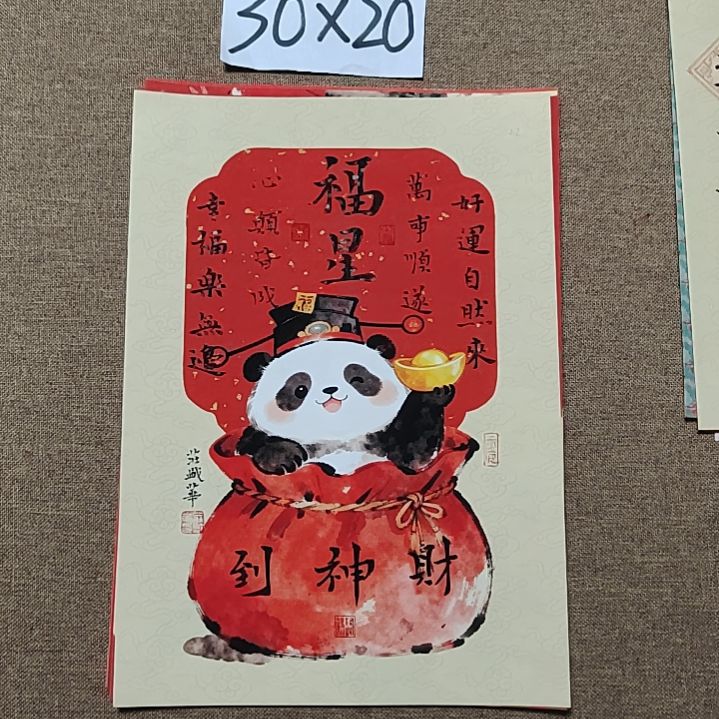 30X20
福星
好運自然來
萬事順遂
心願皆成
幸福樂無邊
福
財神到